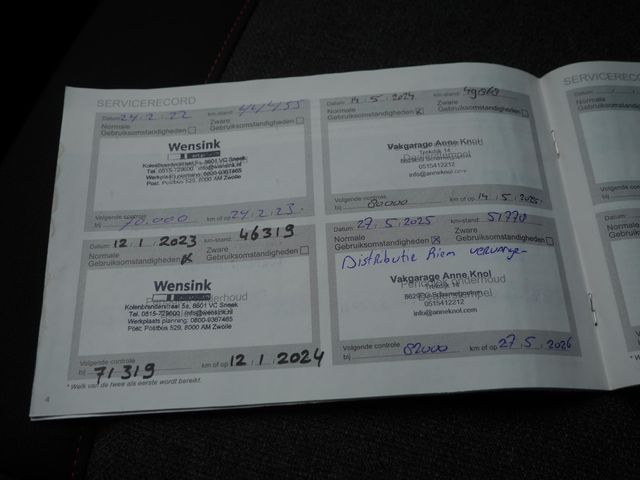 SERVICERECORD
Datum 24.2.22 km-stand 44455
Normale Gebruiksomstandigheden
Zware Gebruiksomstandigheden
Wensink
8601 VC Sneek
Tel. 0515-729600 info@wensink.nl
Werkplaats planning: 0800-9367465
Post: Postbus 529, 8000 AM Zwolle
Volgende controle
bij 70.000 km of op 24.2.23.
Datum 12.1.2023 km-stand 46319
Normale Gebruiksomstandigheden x
Zware Gebruiksomstandigheden
Wensink
Kolenbranderstraat 5a, 8601 VC Sneek
Tel. 0515-729600 info@wensink.nl
Werkplaats planning: 0800-9367465
Post: Postbus 529, 8000 AM Zwolle
Volgende controle
bij 71319 km of op 12.1.2024
* Welk van de twee als eerste wordt bereikt.
4
Datum 14.5.2024 km-stand
Normale Gebruiksomstandigheden x
Zware Gebruiksomstandigheden
Vakgarage Anne Knol
Trekdijk 14
0515412212
info@anneknol.com
Volgende controle
bij 80000 km of op 14.5.2025.
Datum 27.5.2025 km-stand 51770
Normale Gebruiksomstandigheden x
Zware Gebruiksomstandigheden
Distributie Riem
Vakgarage Anne Knol
Trekdijk 14
0515412212
info@anneknol.com
Volgende controle
bij 82000 km of op 27.5.2026
SERVICERECORD